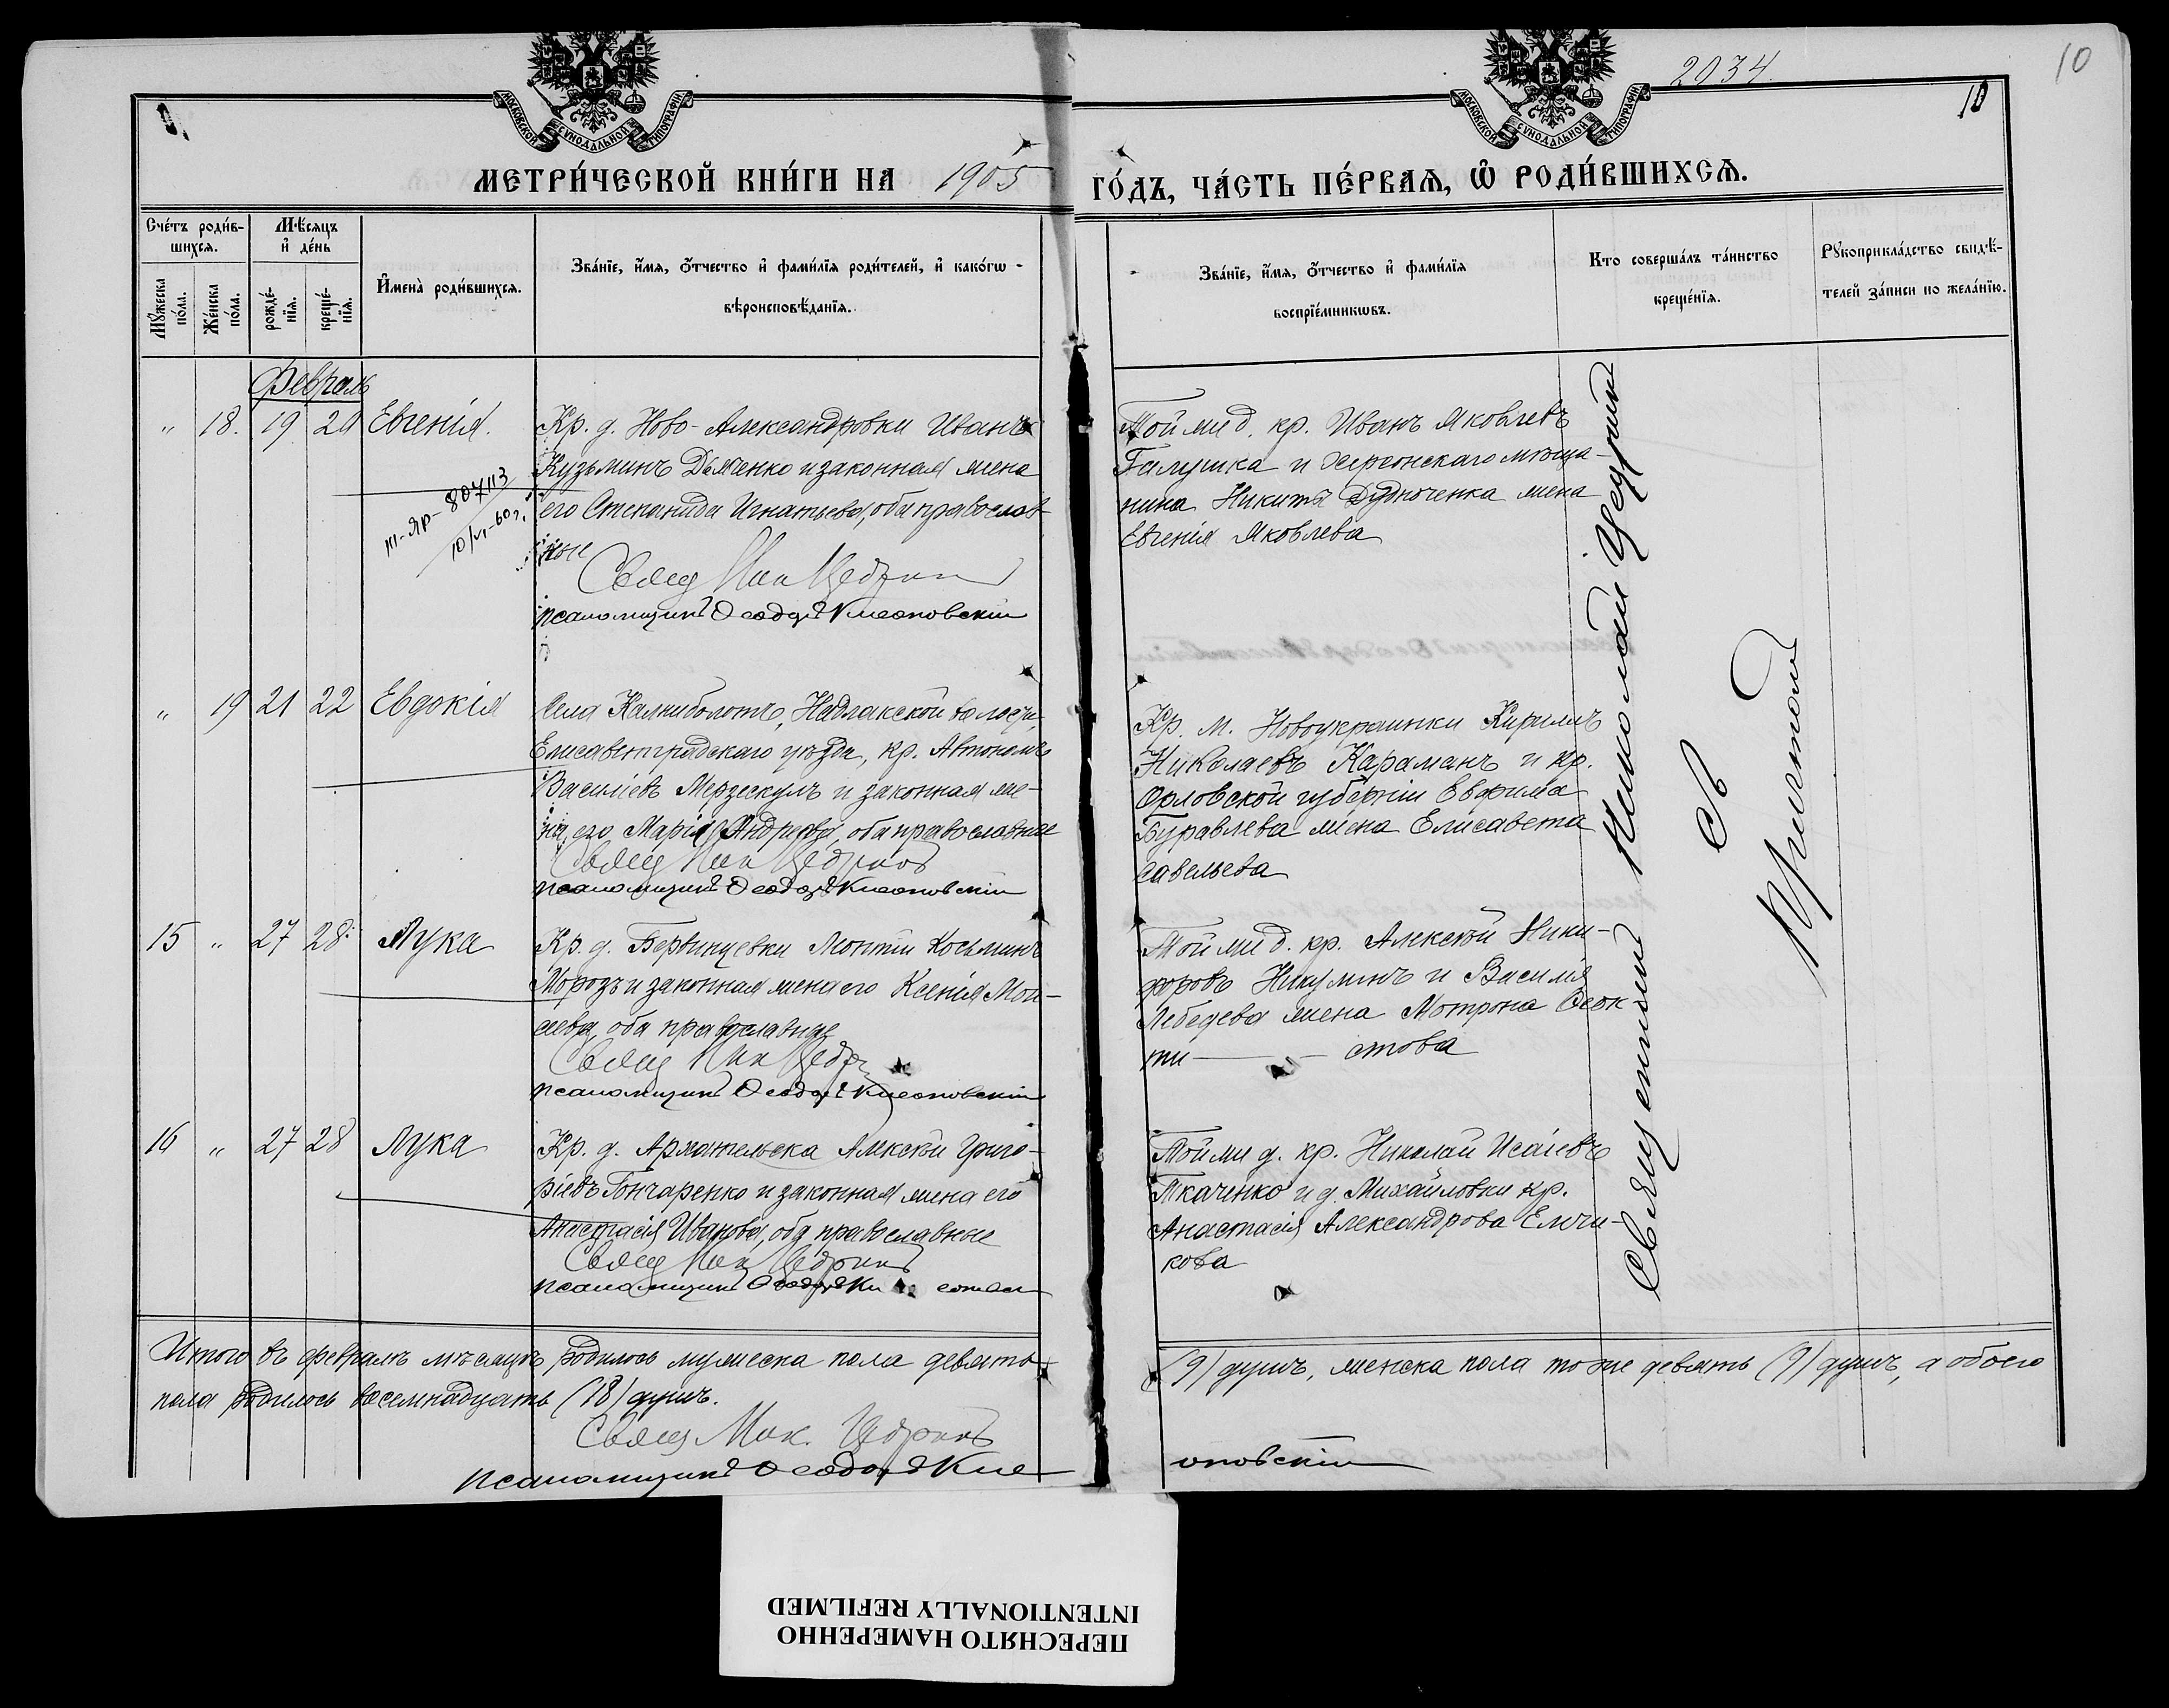 2034
10
10
МОСКОВСКОЙ СѴНОДАЛЬНОЙ ТИПОГРАФІИ
МОСКОВСКОЙ СѴНОДАЛЬНОЙ ТИПОГРАФІИ
МЕТРИ́ЧЕСКОЙ КНИ́ГИ НА 1905 ГО́ДЪ, ЧА́СТЬ ПЕ́РВАѦ, Ѡ҆ РОДИ́ВШИХСѦ.
Сче́тъ роди́в-
шихсѧ.
Мꙋ́жеска по́ла.
Же́нска по́ла.
Мѣ́сѧцъ
и҆ де́нь
рожде́-
нїѧ.
креще́-
нїѧ.
И҆мена̀ роди́вшихсѧ.
Зва́нїе, и҆́мѧ, ѻ҆́тчество и҆ фами́лїѧ роди́телей, и҆ како́гѡ
вѣроисповѣ́данїѧ.
Зва́нїе, и҆́мѧ, ѻ҆́тчество и҆ фами́лїѧ
воспрїе́мникѡвъ.
Кто соверша́лъ та́инство
креще́нїѧ.
Рꙋкоприкла́дство свидѣ́-
телей за́писи по жела́нїю.
Февраль
" 18. 19 20 Евгенія.
Кр. д. Ново-Александровки Иванъ
Кузьминъ Дяченко и законная жена
его Степанида Игнатьева, оба православ-
ные
Свящ Ник Цедрин
псаломщикъ Ѳеодоръ Клеоповскій
III-ЯР- 807113
10/VI-60г.
Той же д. кр. Иванъ Яковлевъ
Галушка и Херсонскаго мѣща-
нина Никиты Дудниченка жена
Евгенія Яковлева
" 19 21 22 Евдокія
Села Калниболотъ, Надлакской волости,
Елисаветградскаго уѣзда, кр. Автономъ
Василіевъ Мерзескулъ и законная же-
на его Марія Андреева, оба православные
Свящ Ник Цедринъ
псаломщикъ Ѳеодоръ Клеоповскій
Кр. м. Новоукраинки Кириллъ
Николаевъ Караманъ и кр.
Орловской губерніи Евфима
Буравлева жена Елисавета
Савельева
15 " 27 28 Лука
Кр. д. Бервинцевки
Морозъ и законная жена его Ксенія Мои-
сеева, оба православные
Свящ Ник Цедр
псаломщикъ Ѳеодоръ Клеоповскій
Той же д. кр. Алексѣй Ники-
форовъ Никулинъ и Василія
Лебедева жена Мотрона Ѳеок
ти — стова
16 " 27 28 Лука
Кр. д. Алексѣй Григо-
ріевъ Гончаренко и законная жена его
Анастасія Иванова, оба православные
Свящ Ник Цедринъ
псаломщикъ Ѳеодоръ
Той же д. кр. Николай Исаіевъ
Ткаченко и д. Михайловки кр.
Анастасія Александрова Елчи-
кова
Священникъ Николай Цедринъ
съ
Причтомъ
Итого въ февралѣ мѣсяцѣ родилось мужеска пола девять (9) душъ, женска пола тоже девять (9) душъ, а обоего
пола родилось восемнадцать (18) душъ.
Свящ Ник. Цедринъ
псаломщикъ Ѳеодоръ Клеоповскій
ПЕРЕСНЯТО НАМЕРЕННО
INTENTIONALLY REFILMED